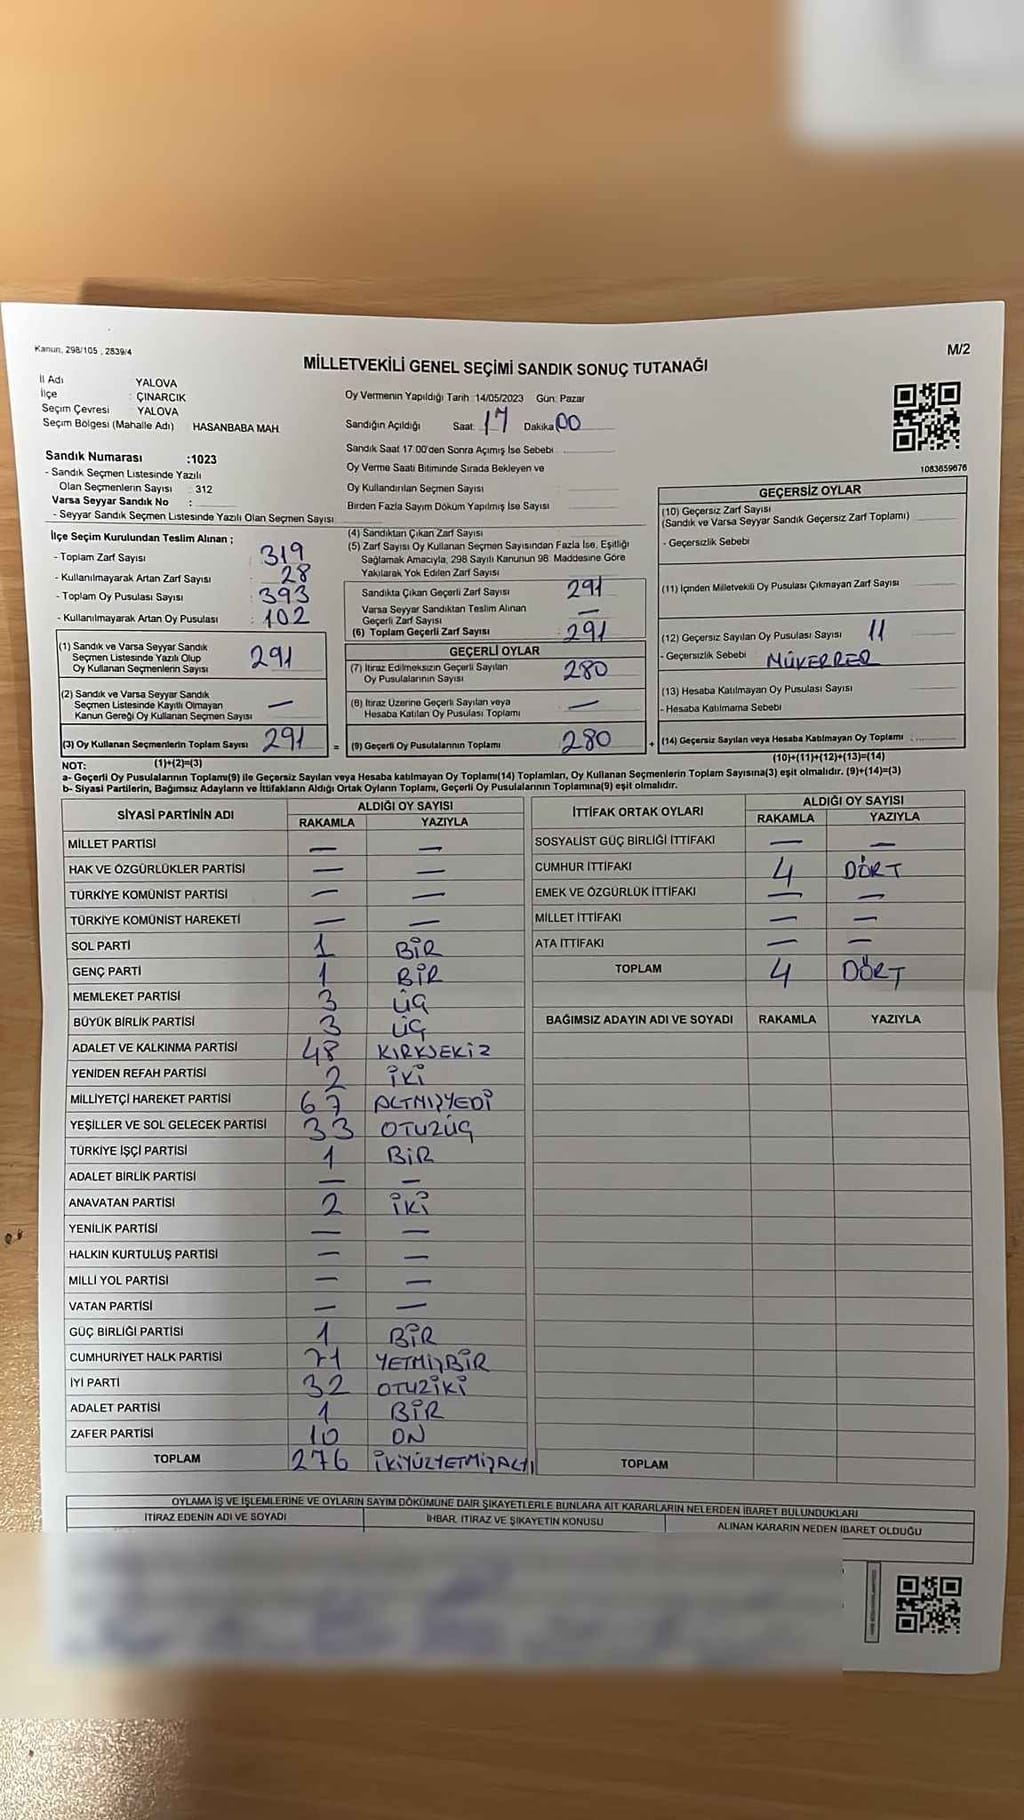 Kanun, 298/105 , 2839/4
M/2
MİLLETVEKİLİ GENEL SEÇİMİ SANDIK SONUÇ TUTANAĞI
İl Adı YALOVA
İlçe : ÇINARCIK
Seçim Çevresi YALOVA
Seçim Bölgesi (Mahalle Adı) HASANBABA MAH.
Oy Vermenin Yapıldığı Tarih :14/05/2023 Gün: Pazar
Sandığın Açıldığı Saat: 17 Dakika 00
Sandık Saat 17.00'den Sonra Açımış İse Sebebi
Oy Verme Saati Bitiminde Sırada Bekleyen ve
Oy Kullandırılan Seçmen Sayısı
Birden Fazla Sayım Döküm Yapılmış İse Sayısı
1083659676
Sandık Numarası :1023
- Sandık Seçmen Listesinde Yazılı
Olan Seçmenlerin Sayısı : 312
Varsa Seyyar Sandık No :
- Seyyar Sandık Seçmen Listesinde Yazılı Olan Seçmen Sayısı
İlçe Seçim Kurulundan Teslim Alınan ;
- Toplam Zarf Sayısı : 319
- Kullanılmayarak Artan Zarf Sayısı : 28
- Toplam Oy Pusulası Sayısı : 393
- Kullanılmayarak Artan Oy Pusulası : 102
(1) Sandık ve Varsa Seyyar Sandık
Seçmen Listesinde Yazılı Olup
Oy Kullanan Seçmenlerin Sayısı 291
(2) Sandık ve Varsa Seyyar Sandık
Seçmen Listesinde Kayıtlı Olmayan
Kanun Gereği Oy Kullanan Seçmen Sayısı —
(3) Oy Kullanan Seçmenlerin Toplam Sayısı 291 =
(1)+(2)=(3)
(4) Sandıktan Çıkan Zarf Sayısı
(5) Zarf Sayısı Oy Kullanan Seçmen Sayısından Fazla İse, Eşitliği
Sağlamak Amacıyla, 298 Sayılı Kanunun 98. Maddesine Göre
Yakılarak Yok Edilen Zarf Sayısı
Sandıkta Çıkan Geçerli Zarf Sayısı 291
Varsa Seyyar Sandıktan Teslim Alınan
Geçerli Zarf Sayısı —
(6) Toplam Geçerli Zarf Sayısı 291
GEÇERLİ OYLAR
(7) İtiraz Edilmeksizin Geçerli Sayılan
Oy Pusulalarının Sayısı 280
(8) İtiraz Üzerine Geçerli Sayılan veya
Hesaba Katılan Oy Pusulası Toplamı —
(9) Geçerli Oy Pusulalarının Toplamı 280 +
GEÇERSİZ OYLAR
(10) Geçersiz Zarf Sayısı
(Sandık ve Varsa Seyyar Sandık Geçersiz Zarf Toplamı)
- Geçersizlik Sebebi
(11) İçinden Milletvekili Oy Pusulası Çıkmayan Zarf Sayısı
(12) Geçersiz Sayılan Oy Pusulası Sayısı 11
- Geçersizlik Sebebi MÜKERRER
(13) Hesaba Katılmayan Oy Pusulası Sayısı
- Hesaba Katılmama Sebebi
(14) Geçersiz Sayılan veya Hesaba Katılmayan Oy Toplamı :
(10)+(11)+(12)+(13)=(14)
NOT:
a- Geçerli Oy Pusulalarının Toplamı(9) ile Geçersiz Sayılan veya Hesaba katılmayan Oy Toplamı(14) Toplamları, Oy Kullanan Seçmenlerin Toplam Sayısına(3) eşit olmalıdır. (9)+(14)=(3)
b- Siyasi Partilerin, Bağımsız Adayların ve İttifakların Aldığı Ortak Oyların Toplamı, Geçerli Oy Pusulalarının Toplamına(9) eşit olmalıdır.
SİYASİ PARTİNİN ADI ALDIĞI OY SAYISI
RAKAMLA YAZIYLA
MİLLET PARTİSİ — —
HAK VE ÖZGÜRLÜKLER PARTİSİ — —
TÜRKİYE KOMÜNİST PARTİSİ — —
TÜRKİYE KOMÜNİST HAREKETİ — —
SOL PARTİ 1 BİR
GENÇ PARTİ 1 BİR
MEMLEKET PARTİSİ 3 ÜÇ
BÜYÜK BİRLİK PARTİSİ 3 ÜÇ
ADALET VE KALKINMA PARTİSİ 48 KIRKSEKİZ
YENİDEN REFAH PARTİSİ 2 İKİ
MİLLİYETÇİ HAREKET PARTİSİ 67 ALTMIŞYEDİ
YEŞİLLER VE SOL GELECEK PARTİSİ 33 OTUZÜÇ
TÜRKİYE İŞÇİ PARTİSİ 1 BİR
ADALET BİRLİK PARTİSİ — —
ANAVATAN PARTİSİ 2 İKİ
YENİLİK PARTİSİ — —
HALKIN KURTULUŞ PARTİSİ — —
MİLLİ YOL PARTİSİ — —
VATAN PARTİSİ — —
GÜÇ BİRLİĞİ PARTİSİ 1 BİR
CUMHURİYET HALK PARTİSİ 71 YETMİŞBİR
İYİ PARTİ 32 OTUZİKİ
ADALET PARTİSİ 1 BİR
ZAFER PARTİSİ 10 ON
TOPLAM 276 İKİYÜZYETMİŞALTI
İTTİFAK ORTAK OYLARI ALDIĞI OY SAYISI
RAKAMLA YAZIYLA
SOSYALİST GÜÇ BİRLİĞİ İTTİFAKI — —
CUMHUR İTTİFAKI 4 DÖRT
EMEK VE ÖZGÜRLÜK İTTİFAKI — —
MİLLET İTTİFAKI — —
ATA İTTİFAKI — —
TOPLAM 4 DÖRT
BAĞIMSIZ ADAYIN ADI VE SOYADI RAKAMLA YAZIYLA
TOPLAM
OYLAMA İŞ VE İŞLEMLERİNE VE OYLARIN SAYIM DÖKÜMÜNE DAİR ŞİKAYETLERLE BUNLARA AİT KARARLARIN NELERDEN İBARET BULUNDUKLARI
İTİRAZ EDENİN ADI VE SOYADI İHBAR, İTİRAZ VE ŞİKAYETİN KONUSU ALINAN KARARIN NEDEN İBARET OLDUĞU